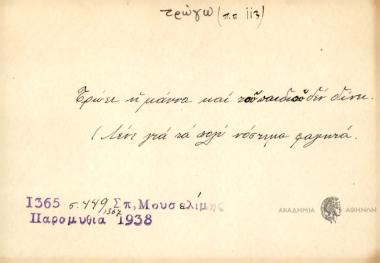 τρώγω (π.π. 113)
Τρώει ἡ μάννα καί τοῦ παιδιοῦ δέν δίνει.
(Λέν γιά τά πολύ νόστιμα φαγητά.
1365 σ. 449 Σπ, Μουσελίμης
1367
Παραμυθια 1938
ΑΚΑΔΗΜΙΑ ΑΘΗΝΩΝ